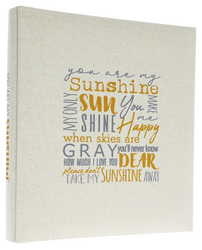 you are my
Sunshine
MY ONLY
SUN
SHINE
You
MAKE
me
Happy
when skies are
GRAY
you'll never know
HOW MUCH I LOVE YOU
DEAR
please don't
TAKE MY
SUNSHINE
AWAY